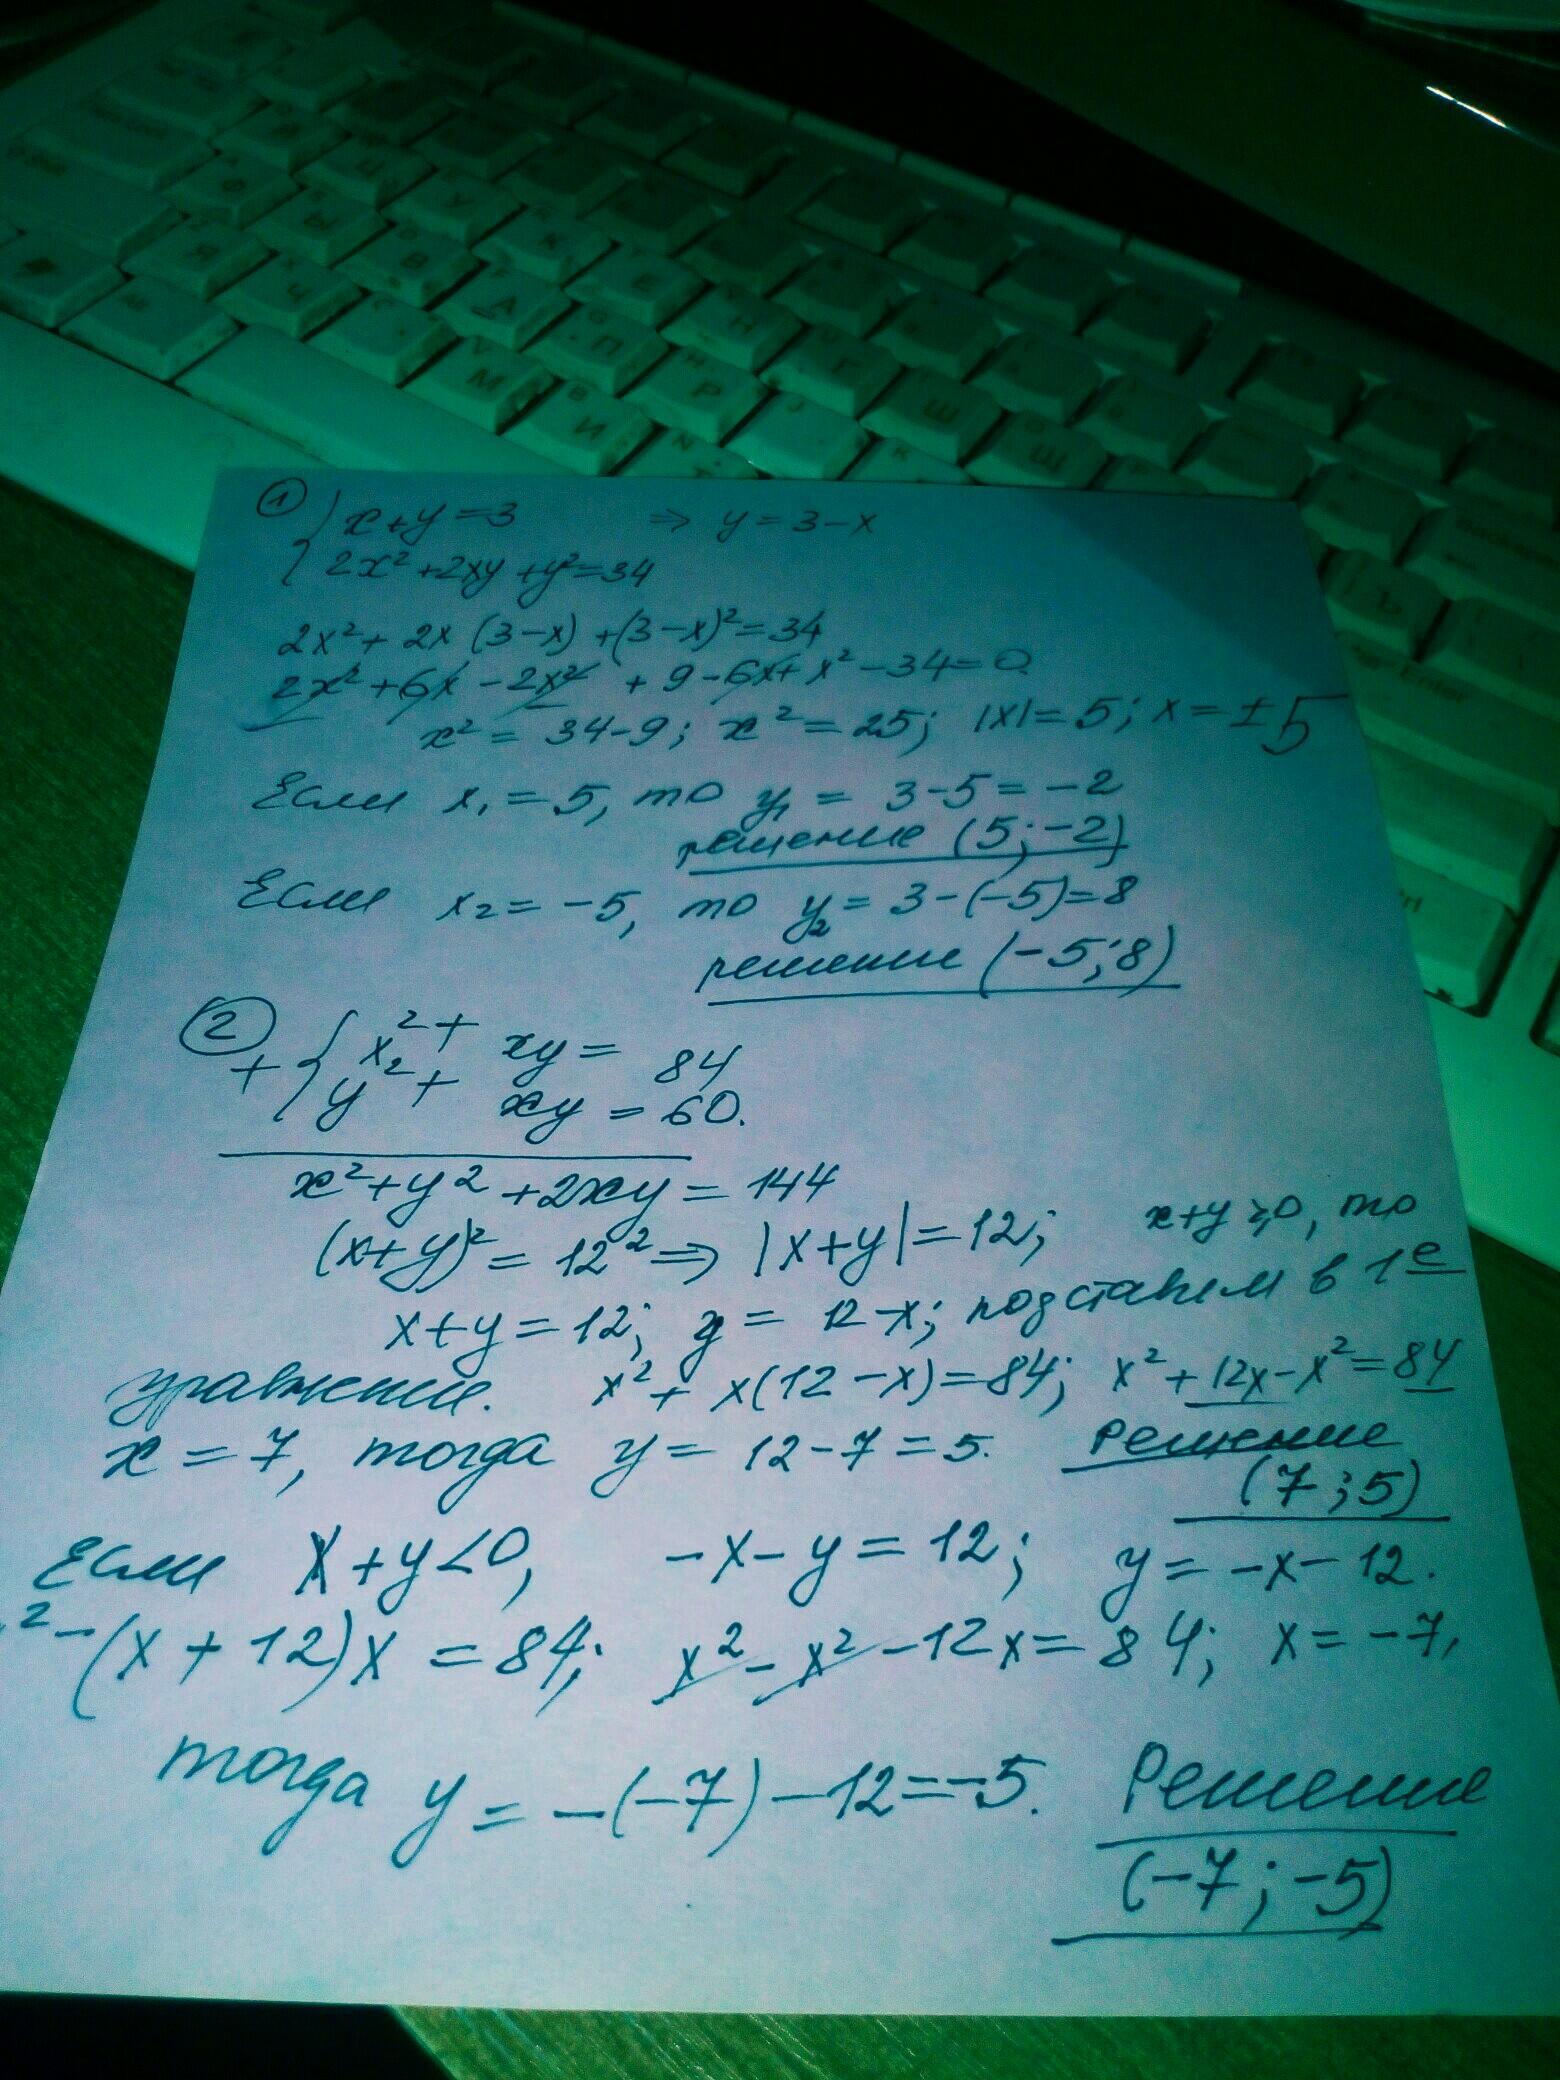 ① { x+y=3 ⇒ y=3-x
2x²+2xy+y²=34
2x²+2x(3-x)+(3-x)²=34
2x²+6x-2x²+9-6x+x²-34=0.
x²=34-9; x²=25; |x|=5; x=±5
Если x₁=5, то y₁=3-5=-2
решение (5;-2)
Если x₂=-5, то y₂=3-(-5)=8
решение (-5;8)
② + { x²+xy=84
y²+xy=60.
x²+y²+2xy=144
(x+y)²=12² ⇒ |x+y|=12; x+y≥0, то
x+y=12; y=12-x; подставим в 1е
уравнение. x²+x(12-x)=84; x²+12x-x²=84
x=7, тогда y=12-7=5. Решение
(7;5)
Если x+y<0, -x-y=12; y=-x-12.
²-(x+12)x=84; x²-x²-12x=84; x=-7,
тогда y=-(-7)-12=-5. Решение
(-7;-5)